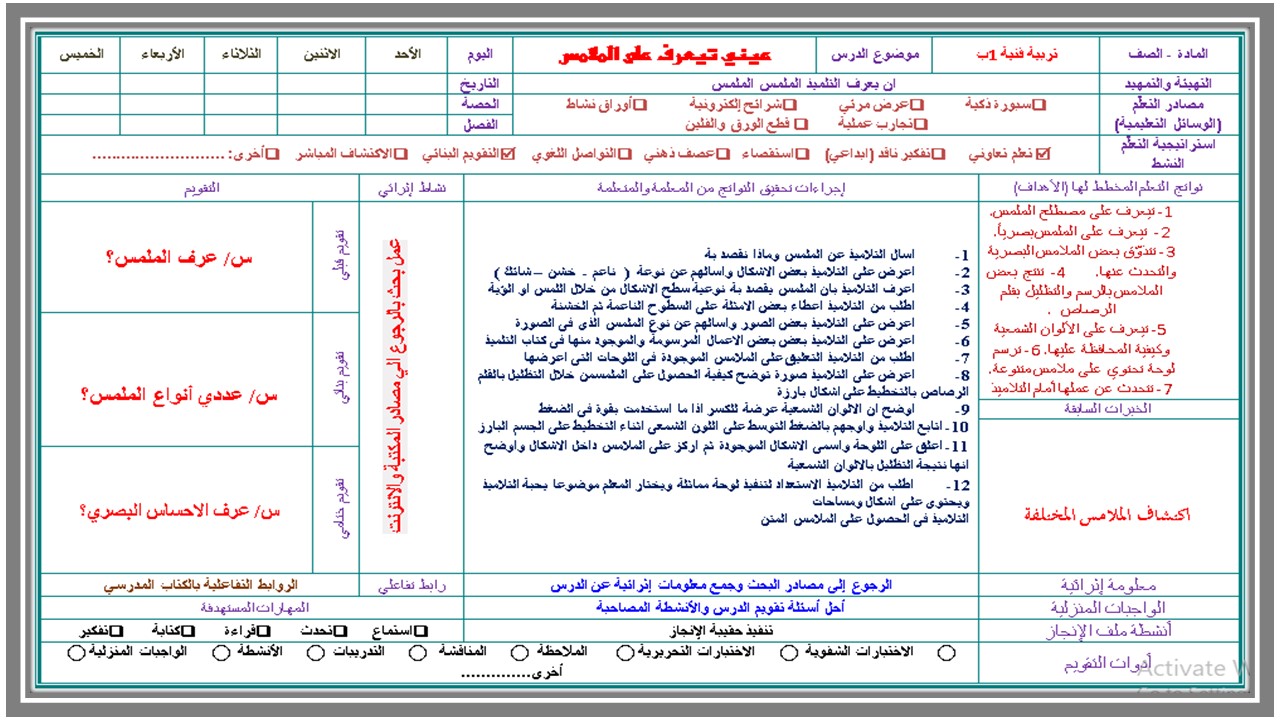 المادة - الصف تربية فنية 1ب موضوع الدرس عيني تتعرف على الملامس اليوم الأحد الاثنين الثلاثاء الأربعاء الخميس
التهيئة والتمهيد ان يعرف التلميذ الملمس الملمس التاريخ
مصادر التعلّم سبورة ذكية عرض مرئي شرائح إلكترونية أوراق نشاط الحصة
(الوسائل التعليمية) تجارب عملية قطع الورق والفلين الفصل
استراتيجية التعلّم النشط تعلم تعاوني تفكير ناقد (ابداعي) استقصاء عصف ذهني التواصل اللغوي التقويم البنائي الاكتشاف المباشر أخرى: ............................
نواتج التعلم المخطط لها (الأهداف) إجراءات تحقيق النواتج من المعلمة والمتعلمة نشاط إثرائي التقويم
1- تتعرف على مصطلح الملمس.
2- تتعرف على الملمس بصرياً.
3- تتذوّق بعض الملامس البصرية
والتحدث عنها. 4- تنتج بعض
الملامس بالرسم والتظليل بقلم
الرصاص .
5- تتعرف على الألوان الشمعية
وكيفية المحافظة عليها. 6- ترسم
لوحة تحتوي على ملامس متنوعة.
7- تتحدث عن عملها أمام التلاميذ
الخبرات السابقة
اكتشاف الملامس المختلفة
1- اسال التلاميذ عن الملمس وماذا نقصد بة
2- اعرض على التلاميذ بعض الاشكال واسالهم عن نوعة ( ناعم - خشن – شائك )
3- اعرف التلاميذ بان الملمس يقصد بة نوعية سطح الاشكال من خلال اللمس او الرؤية
4- اطلب من التلاميذ اعطاء بعض الامثلة على السطوح الناعمة ثم الخشنة
5- اعرض على التلاميذ بعض الصور واسالهم عن نوع الملمس الذى فى الصورة
6- اعرض على التلاميذ بعض بعض الاعمال المرسومة والموجود منها فى كتاب التلميذ
7- اطلب من التلاميذ التعليق على الملامس الموجودة فى اللوحات التى اعرضها
8- اعرض على التلاميذ صورة توضح كيفية الحصول على الملمسمن خلال التظليل بالقلم
الرصاص بالتخطيط على اشكال بارزة
9- اوضح ان الالوان الشمعية عرضة للكسر اذا ما استخدمت بقوة فى الضغط
10- اتابع التلاميذ واوجهم بالضغط التوسط على اللون الشمعى اثناء التخطيط على الجسم البارز
11- اعلق على اللوحة واسمى الاشكال الموجودة ثم اركز على الملامس داخل الاشكال واوضح
انها نتيجة التظليل بالالوان الشمعية
12- اطلب من التلاميذ الاستعداد لتنفيذ لوحة مماثلة ويختار المعلم موضوعا يحبة التلاميذ
ويحتوى على اشكال ومساحات
التلاميذ فى الحصول على الملامس المتن
عمل بحث بالرجوع الي مصادر المكتبة والانترنت
تقويم قبلي
س/ عرف الملمس؟
تقويم بنائي
س/ عددي أنواع الملمس؟
تقويم ختامي
س/ عرف الاحساس البصري؟
معلومة إثرائية الرجوع إلى مصادر البحث وجمع معلومات إثرائية عن الدرس رابط تفاعلي الروابط التفاعلية بالكتاب المدرسي
الواجبات المنزلية أحل أسئلة تقويم الدرس والأنشطة المصاحبة المهارات المستهدفة
أنشطة ملف الإنجاز تنفيذ حقيبة الإنجاز استماع تحدث قراءة كتابة تفكير
أدوات التقويم الاختبارات الشفوية الاختبارات التحريرية الملاحظة المناقشة التدريبات الأنشطة الواجبات المنزلية
أخرى..............
Activate W